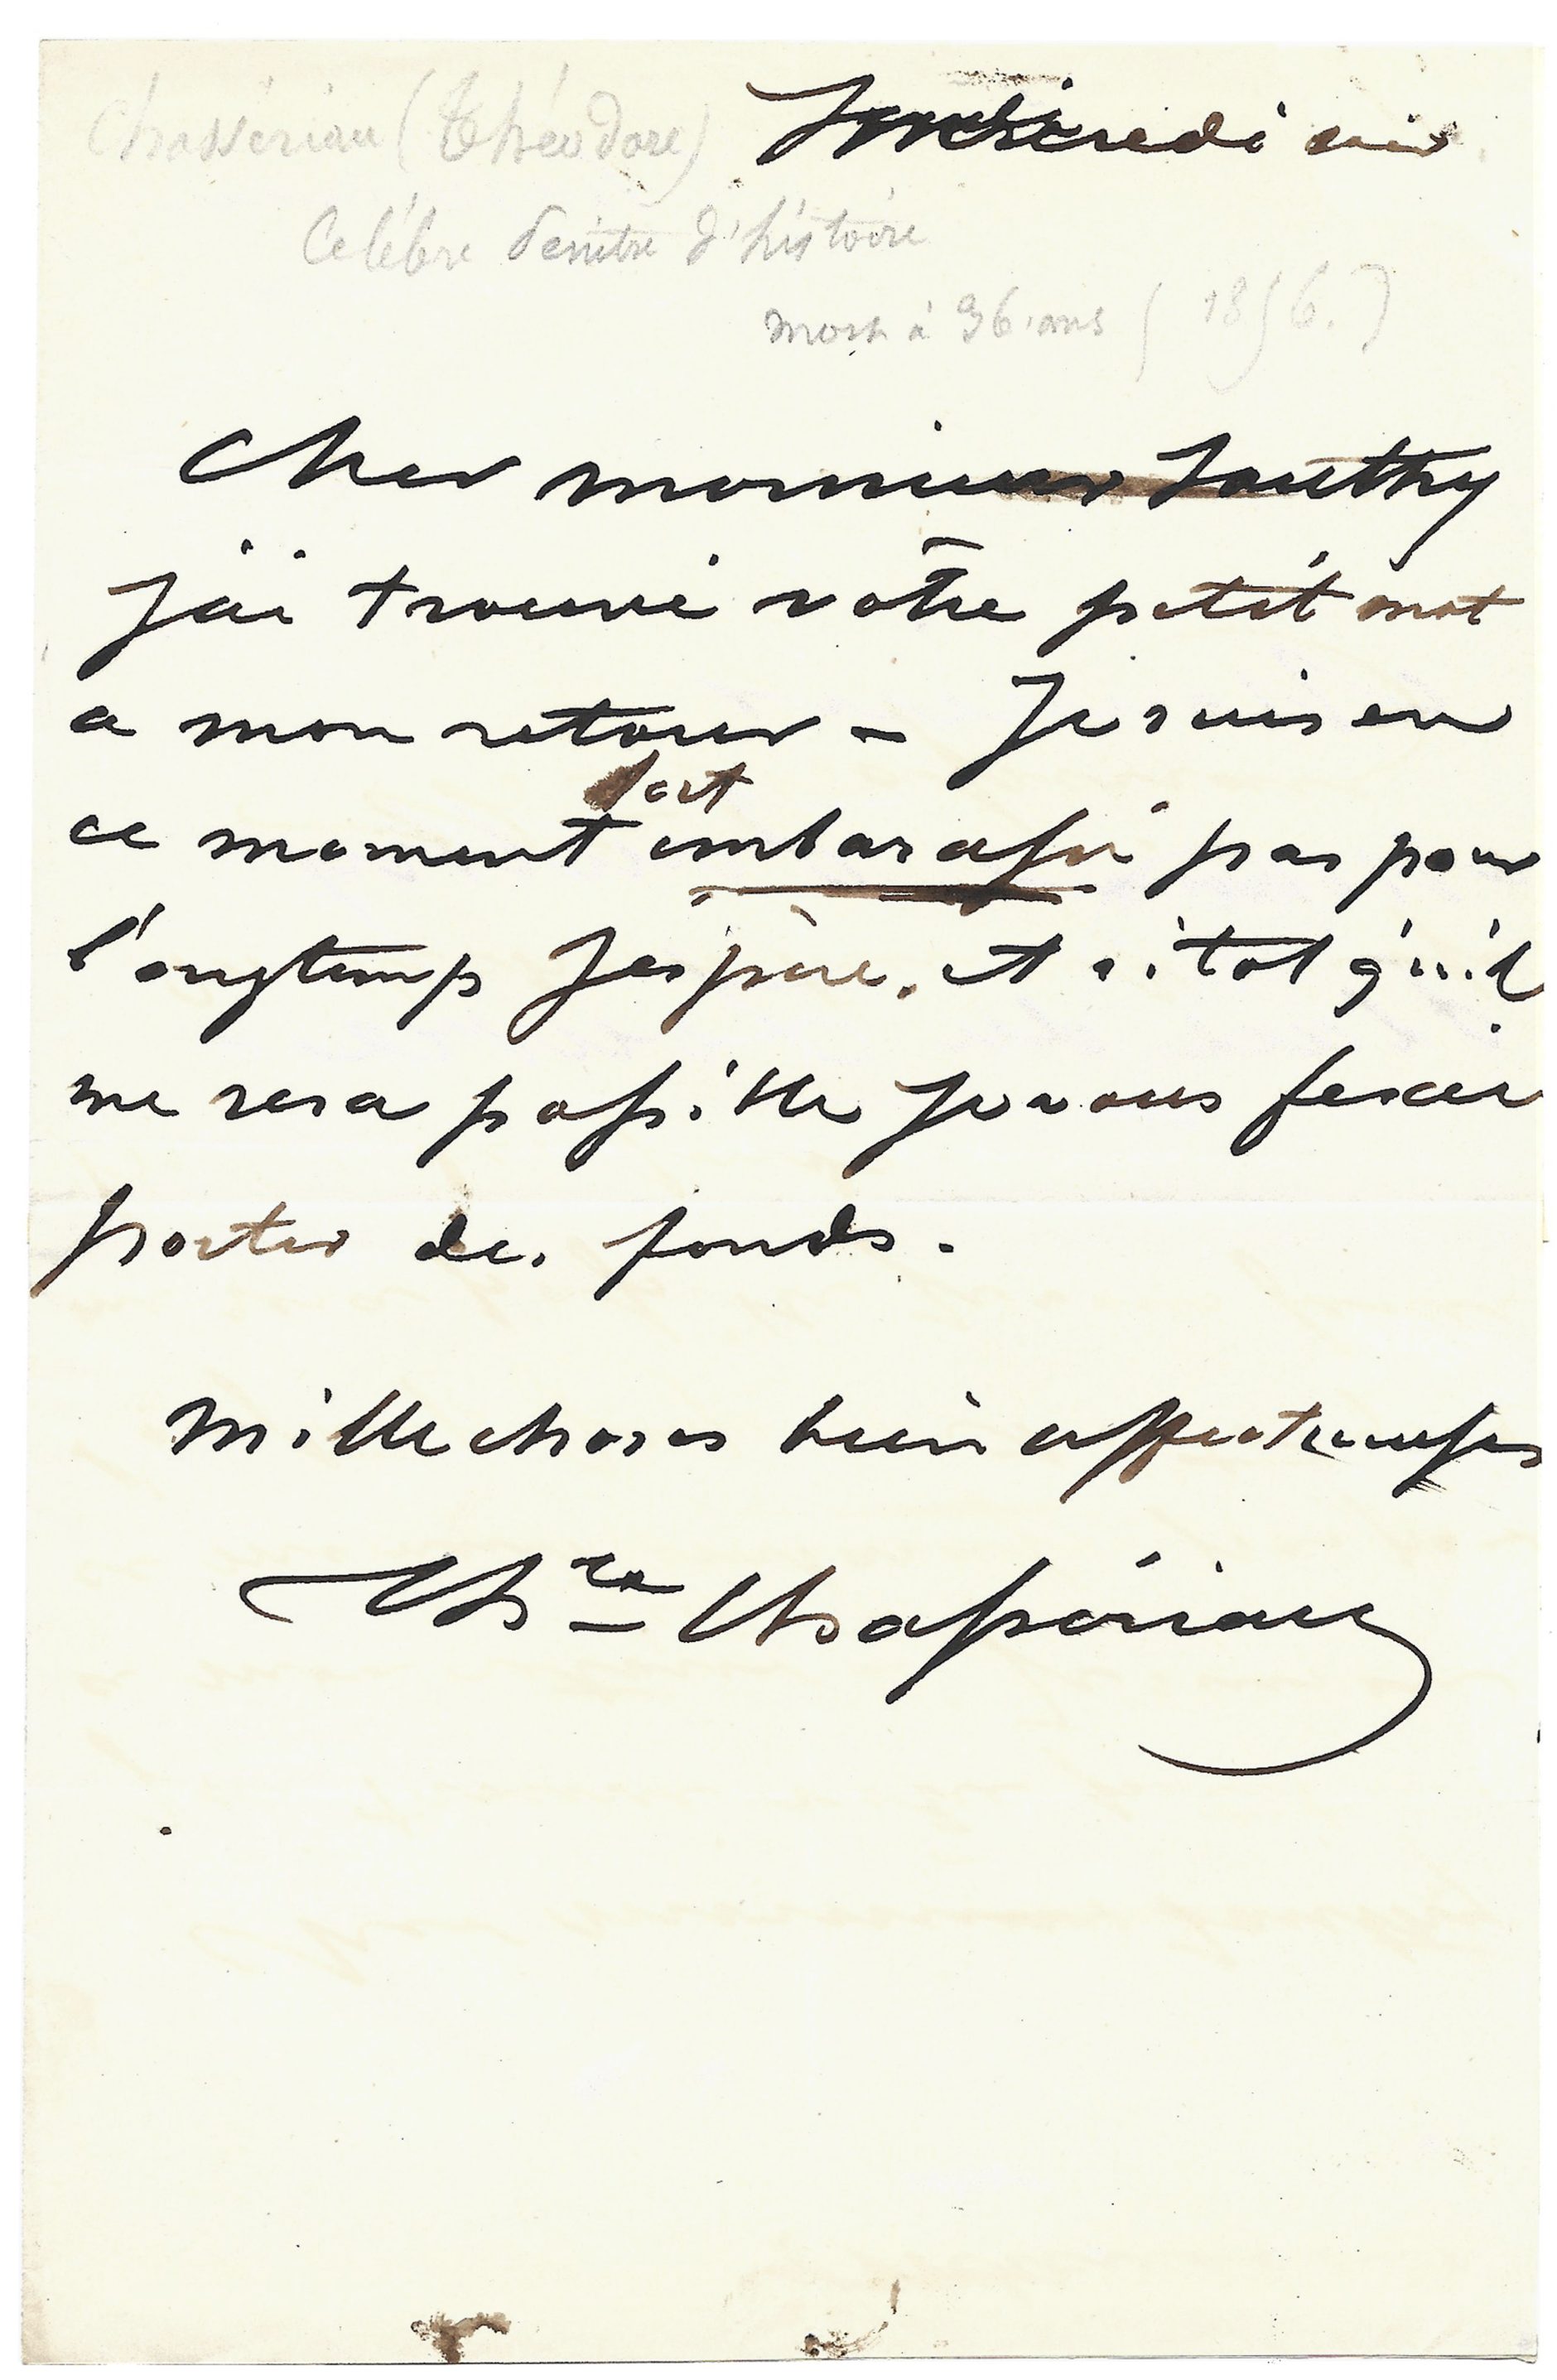 Chassériau (Théodore) soir
Celébre Peintre d'histoire
mort à 36 ans (1856.)
cher monsieur
J'ai trouvé vôtre petit mot
a mon retour – Je suis en
fort
ce moment embarassé pas pour
l'ongtemp Jespère. et sitot qu'il
me sera possible Je vous ferai
porter des fonds.
mille choses bien affectueuses
Th^re Chassériau